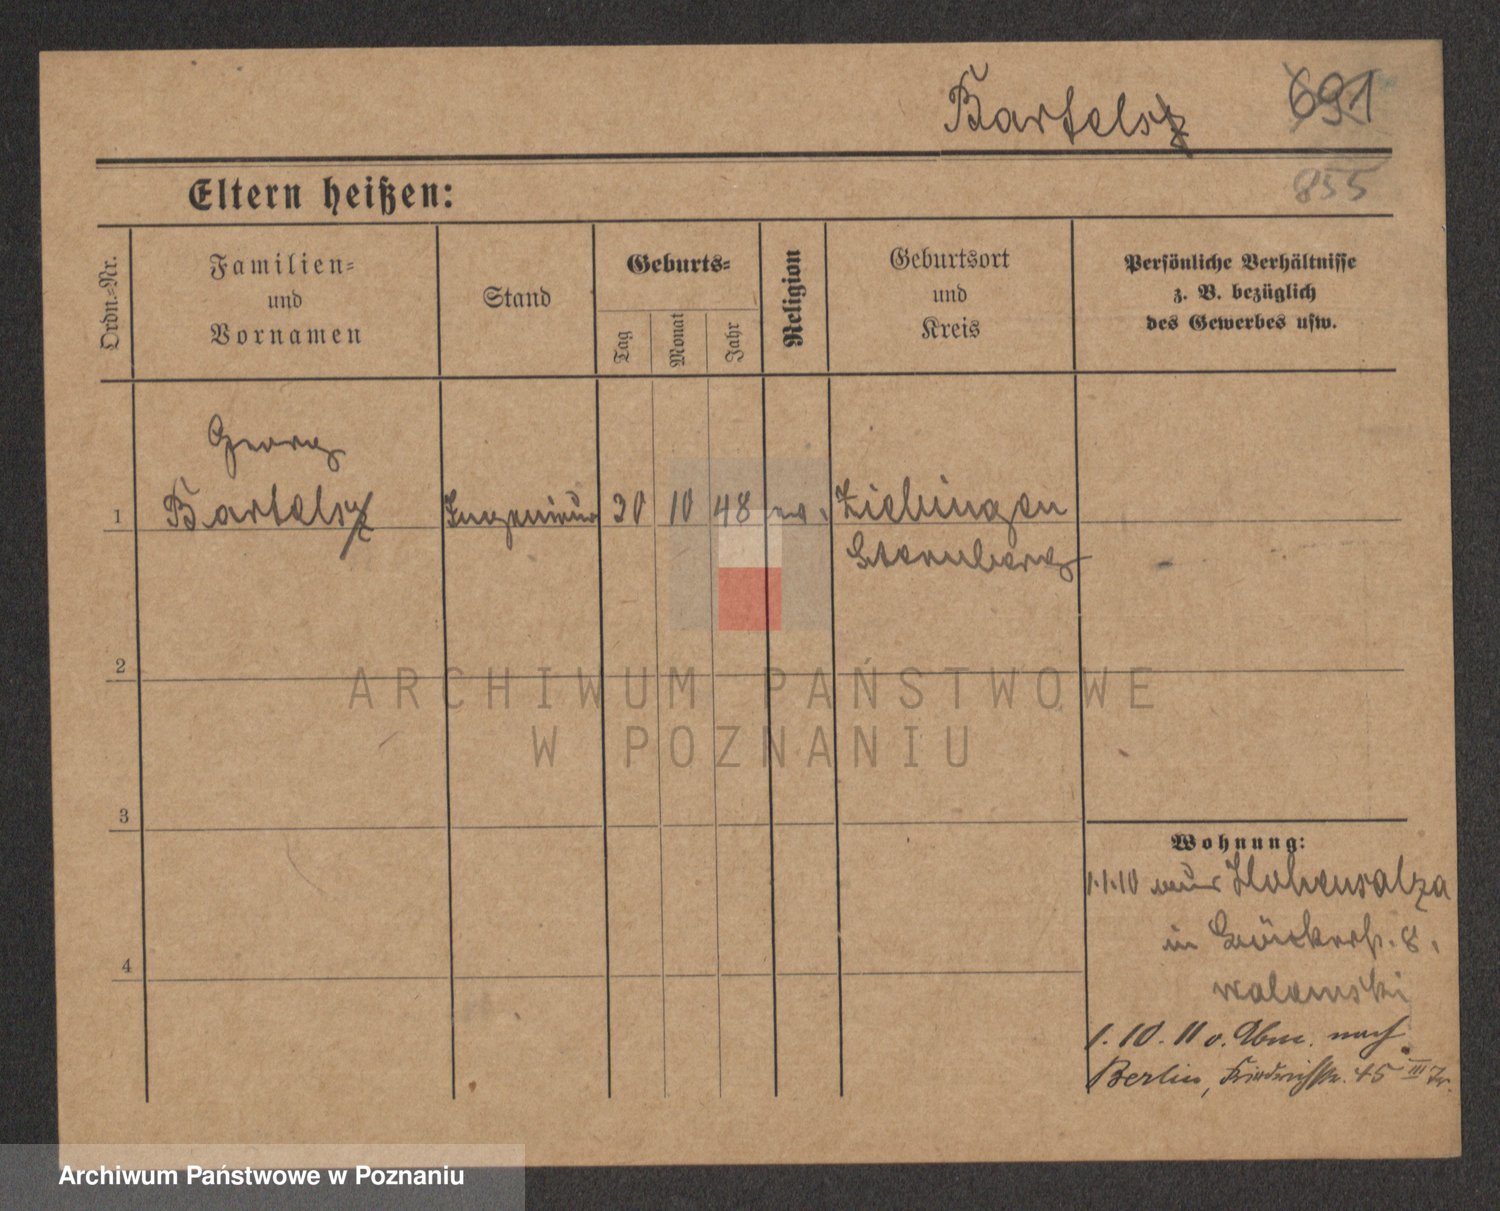 Bartels
691
855
Eltern heißen:
Ordn.-Nr.
Familien-
und
Vornamen
Stand
Geburts-
Tag
Monat
Jahr
Religion
Geburtsort
und
Kreis
Persönliche Verhältnisse
z. B. bezüglich
des Gewerbes usw.
Georg
1 Bartels Ingenieur 30 10 48 ev. Ziebingen
Sternberg
2
ARCHIWUM PAŃSTWOWE
W POZNANIU
3
Wohnung:
1.1.10 Hohensalza
in 8.
4
1.10.11 v. Abm. nach
Berlin, Friedrichstr. 45 III Tr.
Archiwum Państwowe w Poznaniu